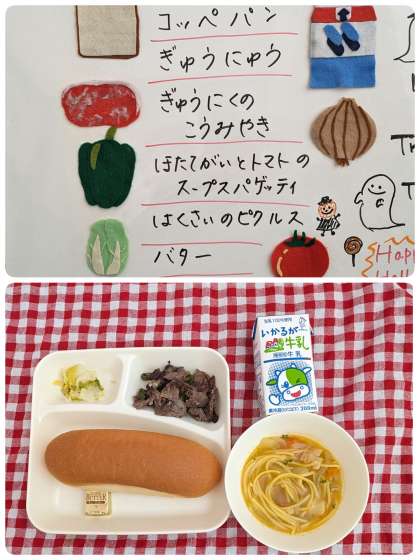 コッペパン
ぎゅうにゅう
ぎゅうにくの
こうみやき
ほたてがいとトマトの
スープスパゲッティ
はくさいのピクルス
バター
Th
Tr
Happ
Hall
いかるが
牛乳
200ml
BUTTER